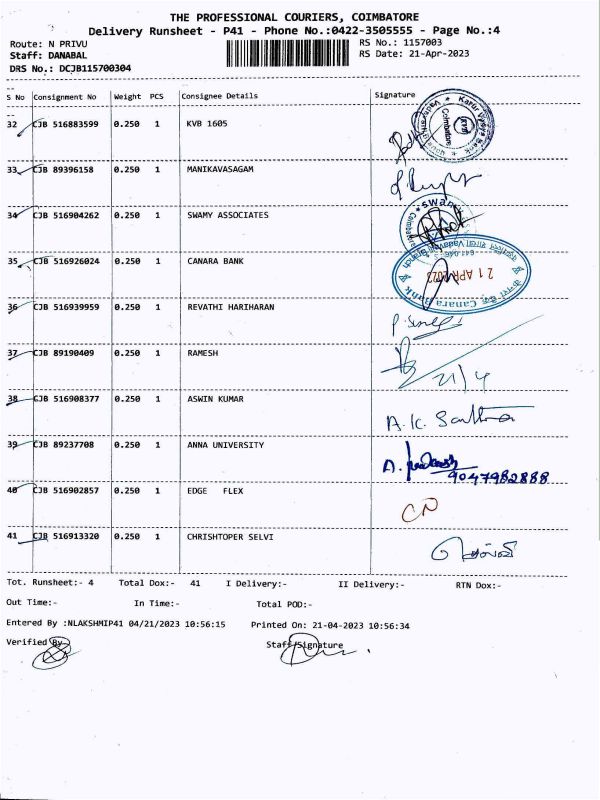 THE PROFESSIONAL COURIERS, COIMBATORE
Delivery Runsheet - P41 - Phone No.:0422-3505555 - Page No.:4
Route: N PRIVU RS No.: 1157003
Staff: DANABAL RS Date: 21-Apr-2023
DRS No.: DCJB115700304
S No Consignment No Weight PCS Consignee Details Signature
32 CJB 516883599 0.250 1 KVB 1605
33 CJB 89396158 0.250 1 MANIKAVASAGAM
34 CJB 516904262 0.250 1 SWAMY ASSOCIATES
35 CJB 516926024 0.250 1 CANARA BANK
21 APR 2023
Canara Bank
36 CJB 516939959 0.250 1 REVATHI HARIHARAN
37 CJB 89190409 0.250 1 RAMESH
21/4
38 CJB 516908377 0.250 1 ASWIN KUMAR
39 CJB 89237708 0.250 1 ANNA UNIVERSITY
9047982888
40 CJB 516902857 0.250 1 EDGE FLEX
41 CJB 516913320 0.250 1 CHRISHTOPER SELVI
Tot. Runsheet:- 4 Total Dox:- 41 I Delivery:- II Delivery:- RTN Dox:-
Out Time:- In Time:- Total POD:-
Entered By :NLAKSHMIP41 04/21/2023 10:56:15 Printed On: 21-04-2023 10:56:34
Verified By Staff Signature